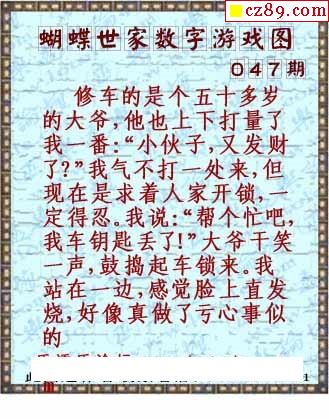 cz89.com
蝴蝶世家数字游戏图
047期
修车的是个五十多岁
的大爷,他也上下打量了
我一番:“小伙子,又发财
了?”我气不打一处来,但
现在是求着人家开锁,一
定得忍。我说:“帮个忙吧,
我车钥匙丢了!”大爷干笑
一声,鼓捣起车锁来。我
站在一边,感觉脸上直发
烧,好像真做了亏心事似
的